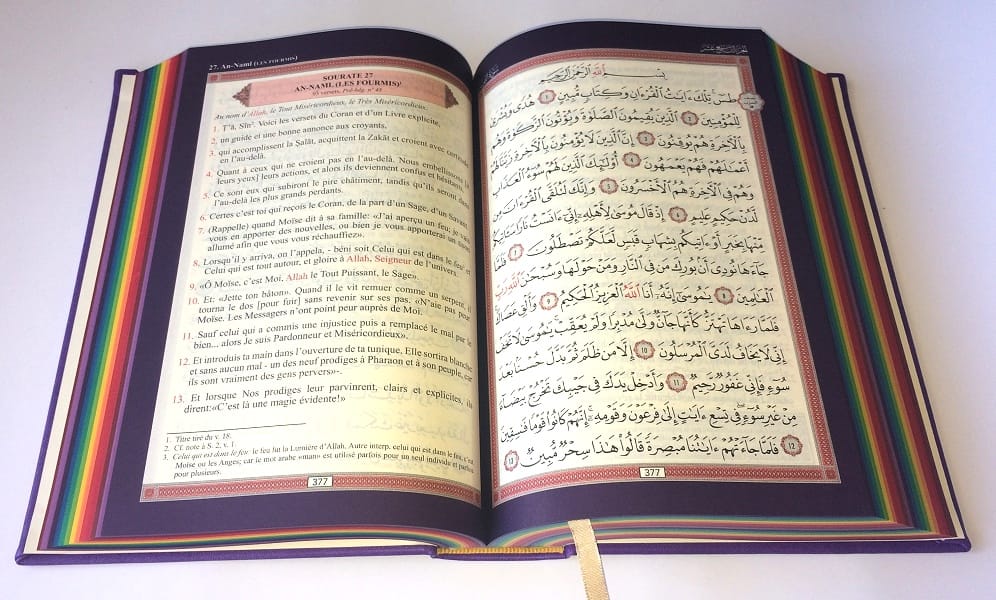 27. An-Naml (LES FOURMIS)
SOURATE 27
AN-NAML (LES FOURMIS)¹
93 versets, Pré-hég. n° 48
Au nom d'Allah, le Tout Miséricordieux, le Très Miséricordieux.
1. Ṭ'ā, Sīn². Voici les versets du Coran et d'un Livre explicite,
2. un guide et une bonne annonce aux croyants,
3. qui accomplissent la Ṣalāt, acquittent la Zakāt et croient avec certitude
en l'au-delà.
4. Quant à ceux qui ne croient pas en l'au-delà, Nous embellissons
leurs yeux] leurs actions, et alors ils deviennent confus et hésitants.
5. Ce sont eux qui subiront le pire châtiment, tandis qu'ils seront dans
l'au-delà les plus grands perdants.
6. Certes c'est toi qui reçois le Coran, de la part d'un Sage, d'un Savant.
7. (Rappelle) quand Moïse dit à sa famille: «J'ai aperçu un feu; je
vous en apporter des nouvelles, ou bien je vous apporterai un
allumé afin que vous vous réchauffiez».
8. Lorsqu'il y arriva, on l'appela, - béni soit Celui qui est dans le feu³ et
Celui qui est tout autour, et gloire à Allah, Seigneur de l'univers.
9. «Ô Moïse, c'est Moi, Allah le Tout Puissant, le Sage».
10. Et: «Jette ton bâton». Quand il le vit remuer comme un serpent, il
tourna le dos [pour fuir] sans revenir sur ses pas. «N'aie pas peur
Moïse. Les Messagers n'ont point peur auprès de Moi.
11. Sauf celui qui a commis une injustice puis a remplacé le mal par le
bien... alors Je suis Pardonneur et Miséricordieux».
12. Et introduis ta main dans l'ouverture de ta tunique. Elle sortira blanche
et sans aucun mal - un des neuf prodiges à Pharaon et à son peuple, car
ils sont vraiment des gens pervers»-.
13. Et lorsque Nos prodiges leur parvinrent, clairs et explicites, ils
dirent:«C'est là une magie évidente!»
1. Titre tiré du v. 18.
2. Cf. note à S. 2, v. 1.
3. Celui qui est dans le feu: le feu fut la Lumière d'Allah. Autre interp. celui qui est dans le feu, c'est
Moïse ou les Anges; car le mot arabe «man» est utilisé parfois pour un seul individu et parfois
pour plusieurs.
377
الجزء التاسع عشر
بِسْمِ ٱللَّهِ ٱلرَّحْمَٰنِ ٱلرَّحِيمِ
طسٓ تِلْكَ ءَايَٰتُ ٱلْقُرْءَانِ وَكِتَابٍ مُّبِينٍ ١ هُدًى وَبُشْرَىٰ
لِلْمُؤْمِنِينَ ٢ ٱلَّذِينَ يُقِيمُونَ ٱلصَّلَوٰةَ وَيُؤْتُونَ ٱلزَّكَوٰةَ وَهُم
بِٱلْءَاخِرَةِ هُمْ يُوقِنُونَ ٣ إِنَّ ٱلَّذِينَ لَا يُؤْمِنُونَ بِٱلْءَاخِرَةِ زَيَّنَّا لَهُمْ
أَعْمَٰلَهُمْ فَهُمْ يَعْمَهُونَ ٤ أُو۟لَٰٓئِكَ ٱلَّذِينَ لَهُمْ سُوٓءُ ٱلْعَذَابِ
وَهُمْ فِى ٱلْءَاخِرَةِ هُمُ ٱلْأَخْسَرُونَ ٥ وَإِنَّكَ لَتُلَقَّى ٱلْقُرْءَانَ مِن
لَّدُنْ حَكِيمٍ عَلِيمٍ ٦ إِذْ قَالَ مُوسَىٰ لِأَهْلِهِۦٓ إِنِّىٓ ءَانَسْتُ نَارًا سَـَٔاتِيكُم
مِّنْهَا بِخَبَرٍ أَوْ ءَاتِيكُم بِشِهَابٍ قَبَسٍ لَّعَلَّكُمْ تَصْطَلُونَ ٧ فَلَمَّا
جَآءَهَا نُودِىَ أَنۢ بُورِكَ مَن فِى ٱلنَّارِ وَمَنْ حَوْلَهَا وَسُبْحَٰنَ ٱللَّهِ رَبِّ
ٱلْعَٰلَمِينَ ٨ يَٰمُوسَىٰٓ إِنَّهُۥٓ أَنَا ٱللَّهُ ٱلْعَزِيزُ ٱلْحَكِيمُ ٩ وَأَلْقِ عَصَاكَ
فَلَمَّا رَءَاهَا تَهْتَزُّ كَأَنَّهَا جَآنٌّ وَلَّىٰ مُدْبِرًا وَلَمْ يُعَقِّبْ يَٰمُوسَىٰ لَا تَخَفْ
إِنِّى لَا يَخَافُ لَدَىَّ ٱلْمُرْسَلُونَ ١٠ إِلَّا مَن ظَلَمَ ثُمَّ بَدَّلَ حُسْنًۢا بَعْدَ
سُوٓءٍ فَإِنِّى غَفُورٌ رَّحِيمٌ ١١ وَأَدْخِلْ يَدَكَ فِى جَيْبِكَ تَخْرُجْ بَيْضَآءَ
مِنْ غَيْرِ سُوٓءٍ فِى تِسْعِ ءَايَٰتٍ إِلَىٰ فِرْعَوْنَ وَقَوْمِهِۦٓ إِنَّهُمْ كَانُوا۟ قَوْمًا فَٰسِقِينَ
١٢ فَلَمَّا جَآءَتْهُمْ ءَايَٰتُنَا مُبْصِرَةً قَالُوا۟ هَٰذَا سِحْرٌ مُّبِينٌ ١٣
377